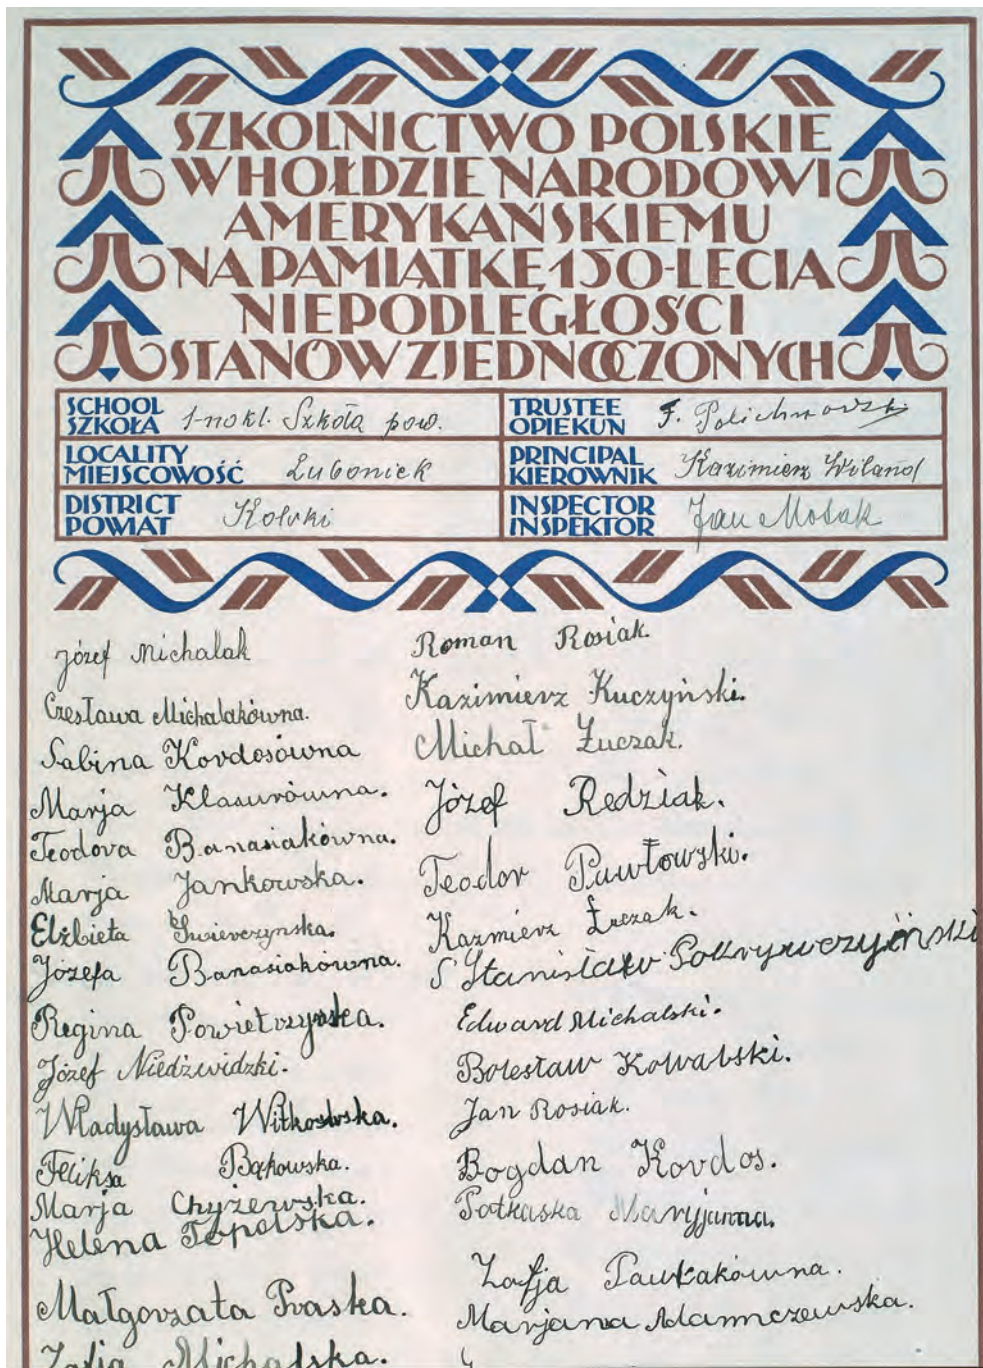 SZKOLNICTWO POLSKIE
W HOŁDZIE NARODOWI
AMERYKAŃSKIEMU
NA PAMIĄTKĘ 150-LECIA
NIEPODLEGŁOŚCI
STANÓW ZJEDNOCZONYCH
SCHOOL
SZKOŁA 1-nokl. Szkoła pow.
TRUSTEE
OPIEKUN F.
LOCALITY
MIEJSCOWOŚĆ Luboniek
PRINCIPAL
KIEROWNIK Kazimierz Wiland
DISTRICT
POWIAT Kolski
INSPECTOR
INSPEKTOR Jan
Józef Michalak
Czesława Michalakówna.
Sabina Kordosówna
Marja Klasurówna.
Teodora Banasiakówna.
Marja Jankowska.
Elżbieta Świerczynska.
Józefa Banasiakówna.
Regina Powietrzyńska.
Józef Niedźwidzki.
Władysława Witkowska.
Feliksa Bąkowska.
Marja Chyżewska.
Helena Topolska.
Małgorzata Praska.
Zofia Michalska.
Roman Rosiak.
Kazimierz Kuczyński.
Michał Łuczak.
Józef Redziak.
Teodor Pawłowski.
Kazmierz Łuczak.
Stanisław Pokrywczyński
Edward Michalski.
Bolesław Kowalski.
Jan Rosiak.
Bogdan Kordos.
Potkaska Maryjanna.
Zofja Pawlakówna.
Marjana Adamczewska.